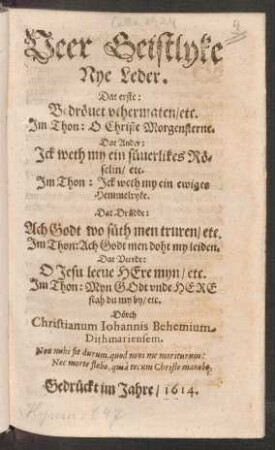 Veer Geistlyke
Nye Leder.
Dat erste:
Bedröuet vthermaten/etc.
Im Thon: O Christe Morgensterne.
Dat Ander:
Ick weth my ein süuerlikes Rö-
selin/ etc.
Im Thon: Ick weth my ein ewiges
Hemmelryke.
Dat Drüdde:
Ach Godt wo süth men truren/etc.
Im Thon: Ach Godt men doht my leiden.
Dat Veerde:
O Jesu leeue HEre myn/etc.
Im Thon: Myn GOdt vnde HERE
stah du my by/etc.
Dörch
Christianum Iohannis Behemium
Dithmariensem.
Non mihi sit durum, quod novi me moriturum:
Nec morte flebo, quià tecum Christe manebo.
Gedrückt im Jahre/1614.